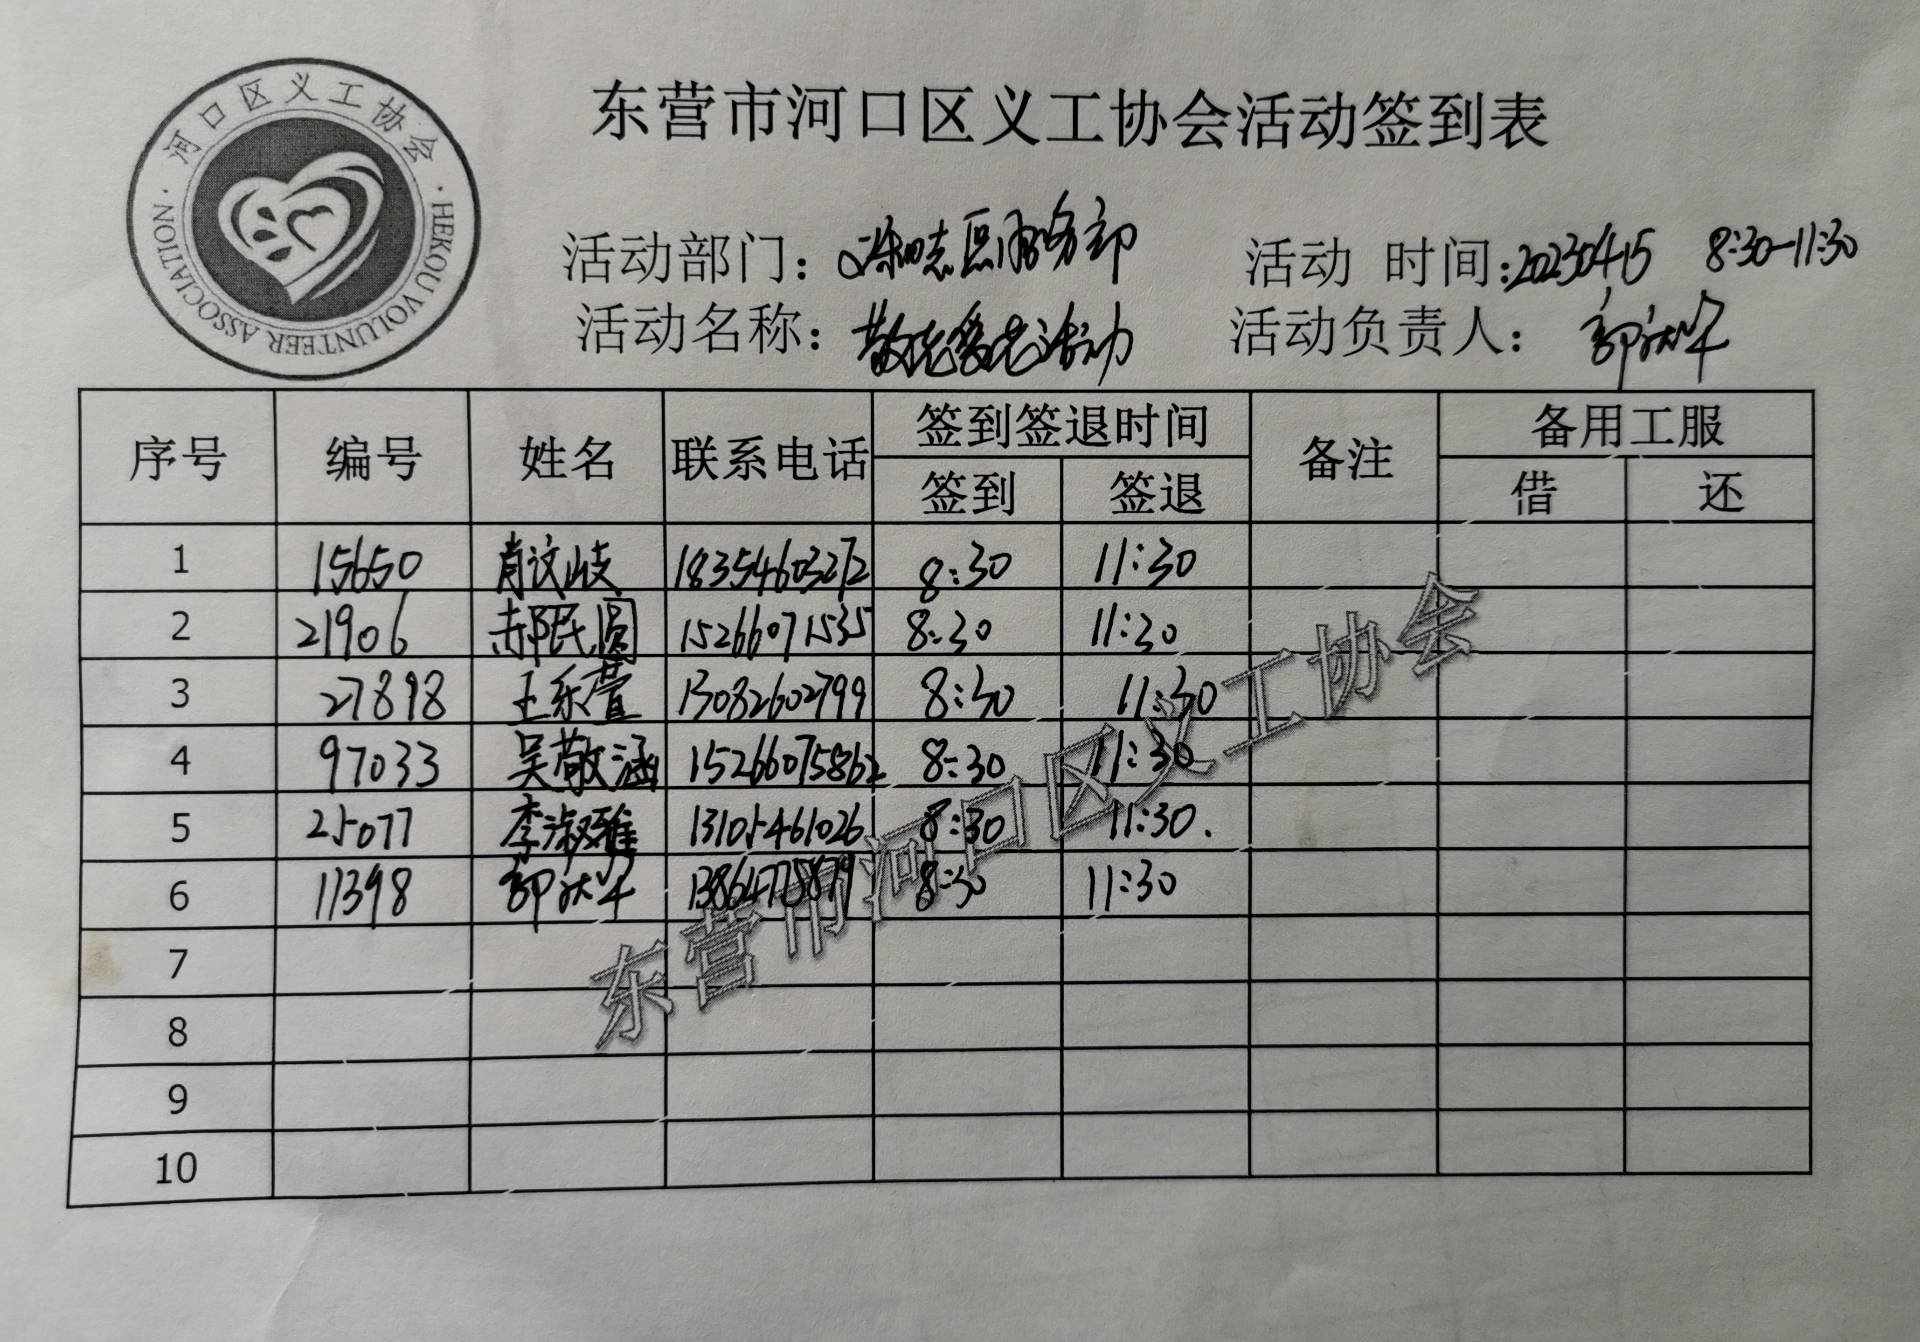 东营市河口区义工协会活动签到表
河口区义工协会
HEKOU VOLUNTEER ASSOCIATION
活动部门： 服务部 活动 时间：20230415 8:30-11:30
活动名称： 敬老爱老活动 活动负责人：
序号 编号 姓名 联系电话 签到签退时间 备注 备用工服
签到 签退 借 还
1 15650 肖汶岐 18354603272 8:30 11:30
2 21906 郝民圆 15266071535 8:30 11:30
3 27898 王乐萱 13082602799 8:30 11:30
4 97033 吴敬涵 15266075862 8:30 11:30
5 25077 李淑雅 13105461026 8:30 11:30.
6 11398 13864778879 8:30 11:30
7
8
9
10
东营市河口区义工协会